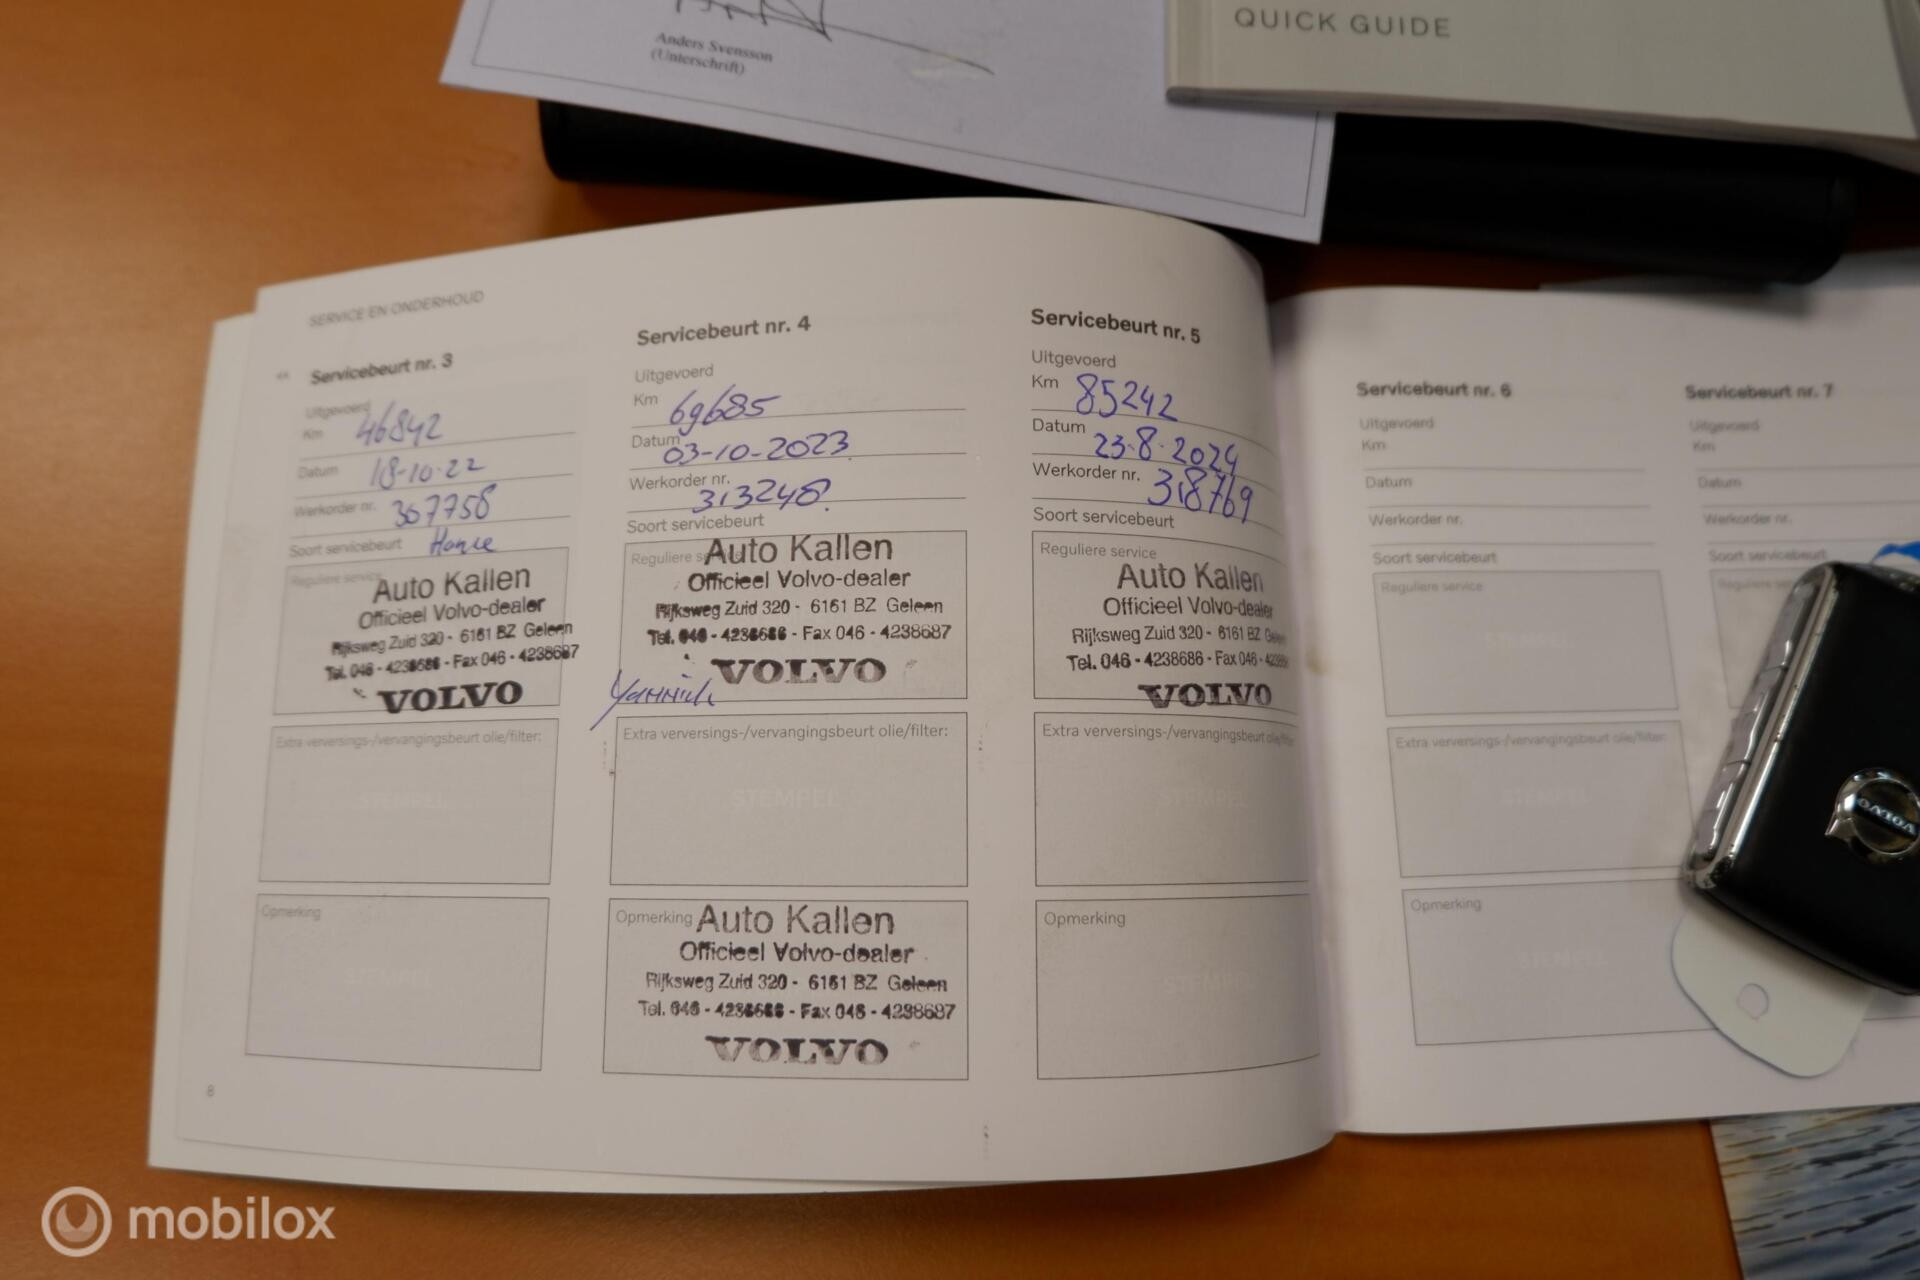 Anders Svensson
(Unterschrift)
QUICK GUIDE
SERVICE EN ONDERHOUD
Servicebeurt nr. 3
Uitgevoerd
Km 46842
Datum 18-10-22
Werkorder nr. 307758
Soort servicebeurt
Reguliere service
Auto Kallen
Officieel Volvo-dealer
Rijksweg Zuid 320 - 6161 BZ Geleen
Tel. 046 - 4238686 - Fax 046 - 4238687
VOLVO
Extra verversings-/vervangingsbeurt olie/filter:
STEMPEL
Opmerking
STEMPEL
8
Servicebeurt nr. 4
Uitgevoerd
Km 69685
Datum 03-10-2023
Werkorder nr. 313248
Soort servicebeurt
Reguliere service
Auto Kallen
Officieel Volvo-dealer
Rijksweg Zuid 320 - 6161 BZ Geleen
Tel. 046 - 4238686 - Fax 046 - 4238687
VOLVO
Yannick
Extra verversings-/vervangingsbeurt olie/filter:
STEMPEL
Opmerking
Auto Kallen
Officieel Volvo-dealer
Rijksweg Zuid 320 - 6161 BZ Geleen
Tel. 046 - 4238686 - Fax 046 - 4238687
VOLVO
Servicebeurt nr. 5
Uitgevoerd
Km 85242
Datum 23-8-2024
Werkorder nr. 318769
Soort servicebeurt
Reguliere service
Auto Kallen
Officieel Volvo-dealer
Rijksweg Zuid 320 - 6161 BZ Geleen
Tel. 046 - 4238686 - Fax 046 -
VOLVO
Extra verversings-/vervangingsbeurt olie/filter
STEMPEL
Opmerking
STEMPEL
Servicebeurt nr. 6
Uitgevoerd
Km
Datum
Werkorder nr.
Soort servicebeurt
Reguliere service
STEMPEL
Extra verversings-/vervangingsbeurt olie/filter:
STEMPEL
Opmerking
STEMPEL
Servicebeurt nr. 7
Uitgevoerd
Km
Datum
Werkorder nr.
Soort servicebeurt
Reguliere
VOLVO
mobilox